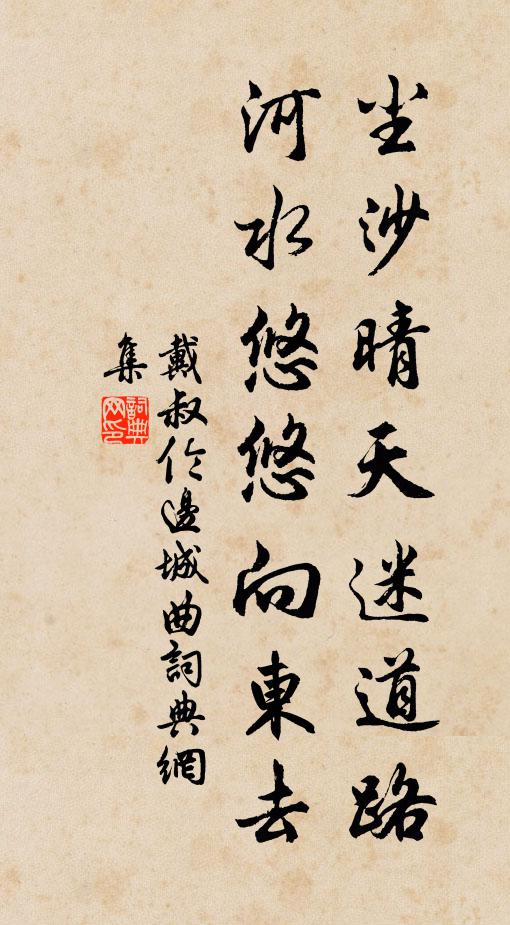 尘沙晴天迷道路
河水悠悠向東去
戴叔伦邊城曲詞典網
集
詞典网印